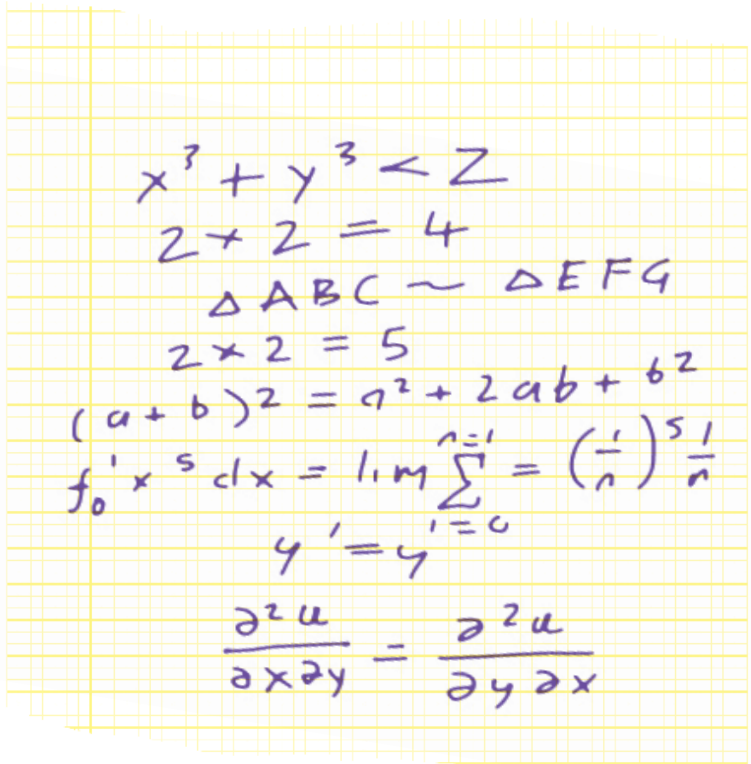 x³ + y³ < Z
2 + 2 = 4
△ABC ~ △EFG
2 × 2 = 5
(a + b)² = a² + 2ab + b²
f₀' x⁵ dx = lim Σ n=1 i=0 = (i/n)⁵ 1/n
y' = y
∂²u/∂x∂y = ∂²u/∂y∂x